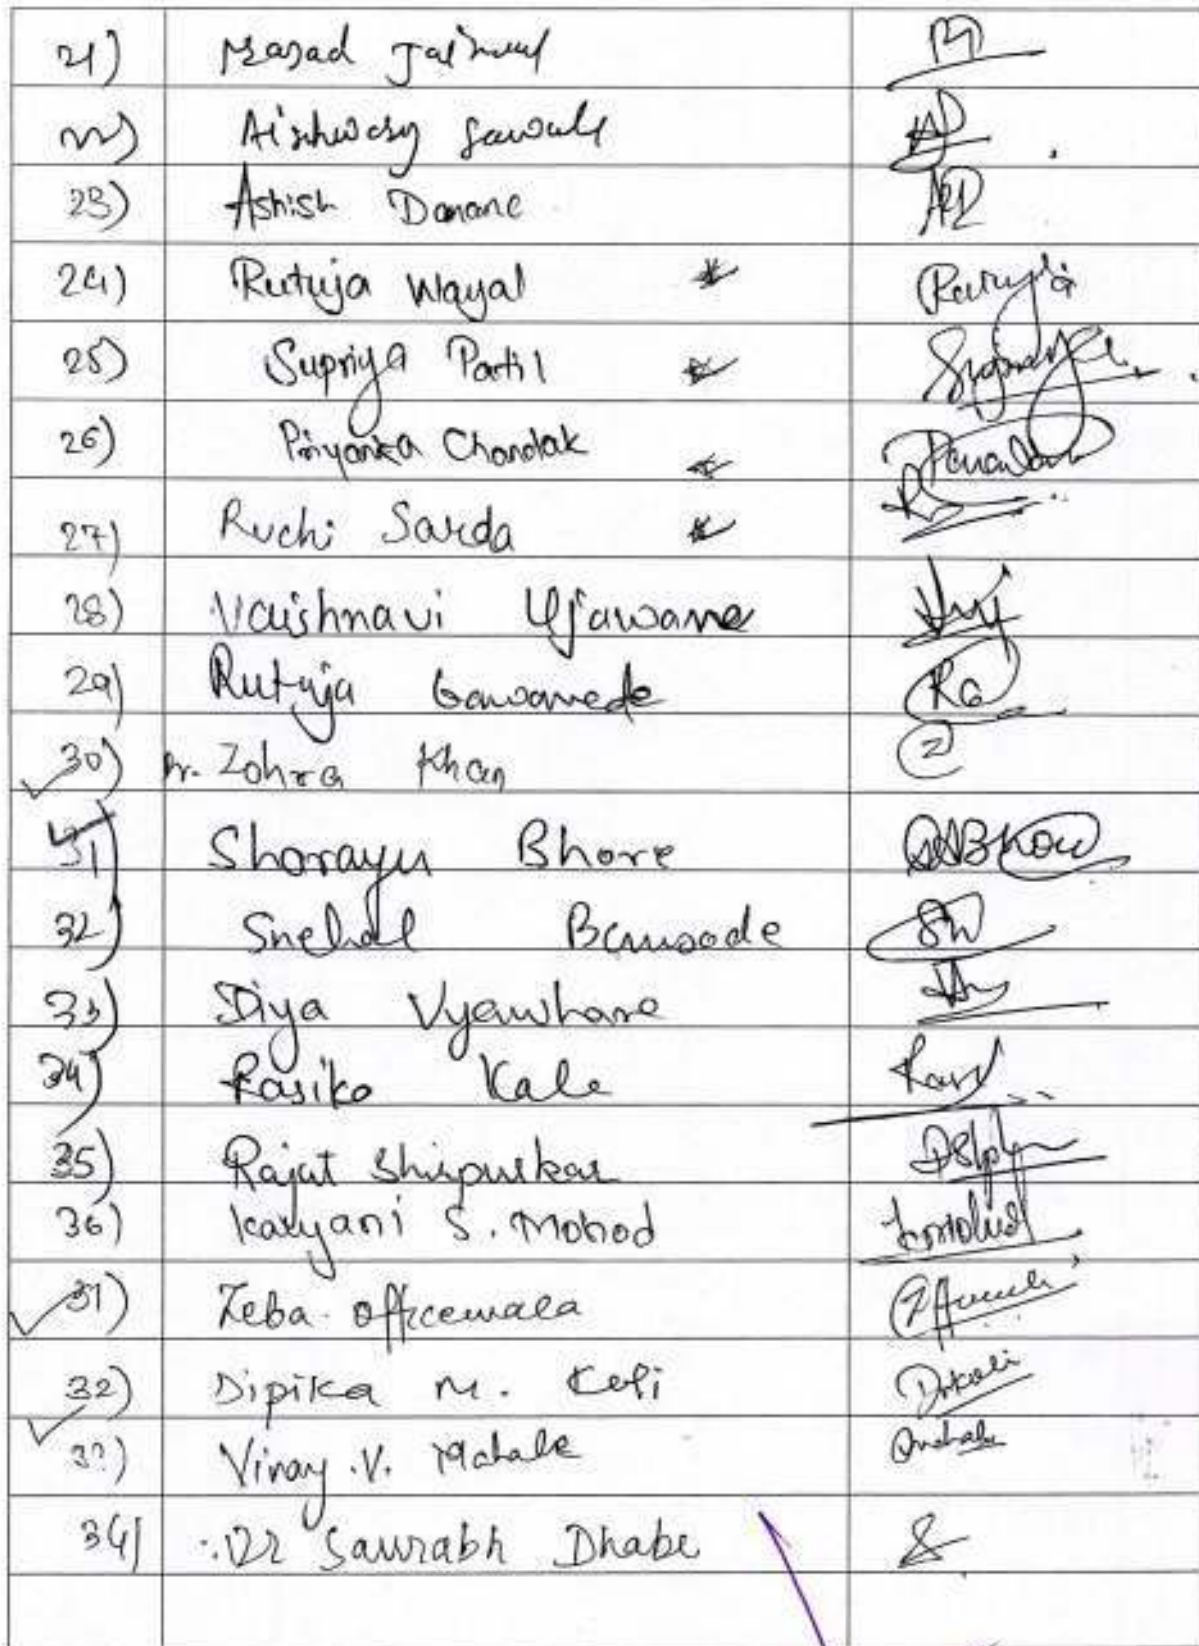 21) Prasad Jaiswal
22) Aishwary Gawali
23) Ashish Damane ARD
24) Rutuja Wayal Rutuja
25) Supriya Patil
26) Priyanka Chandak
27) Ruchi Sarda
28) Vaishnavi Ujawane
29) Rutuja Gawande RG
30) Dr. Zohra Khan Z
31) Sharayu Bhore
32) Snehal Bansode
33) Diya Vyawhare
34) Rasika Kale
35) Rajat Shirpurkar
36) Kalyani S. Mohod
31) Zeba officewala
32) Dipika M. Koli Dmkoli
33) Vinay .V. Mahale
34) Dr Saurabh Dhabe